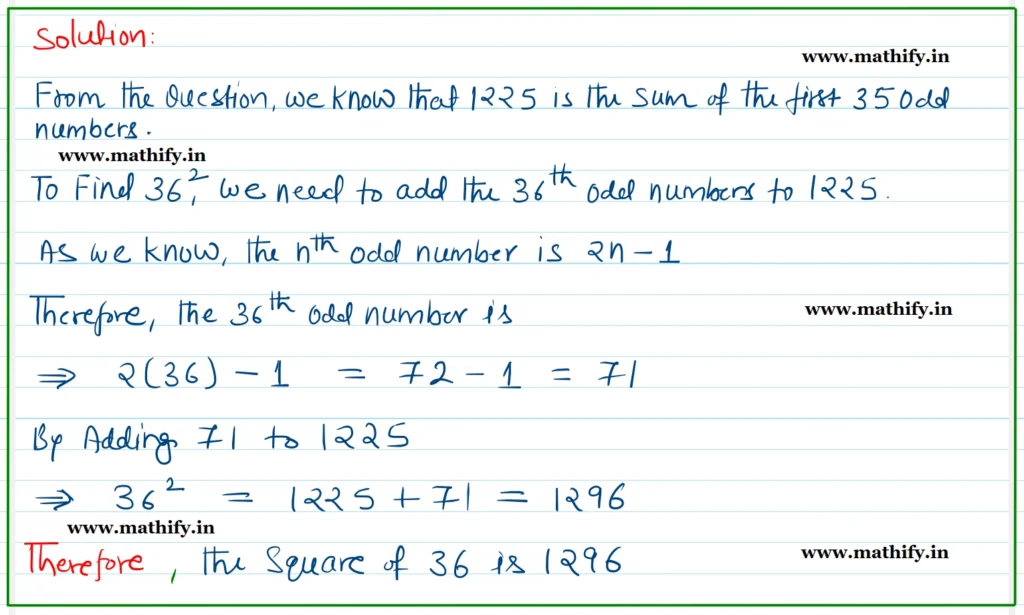 Solution:
www.mathify.in
From the Question, we know that 1225 is the sum of the first 35 odd
numbers.
www.mathify.in
To Find 36², we need to add the 36th odd numbers to 1225.
As we know, the nth odd number is 2n - 1
Therefore, the 36th odd number is
www.mathify.in
⇒ 2(36) - 1 = 72 - 1 = 71
By Adding 71 to 1225
⇒ 36² = 1225 + 71 = 1296
www.mathify.in
Therefore, the Square of 36 is 1296
www.mathify.in